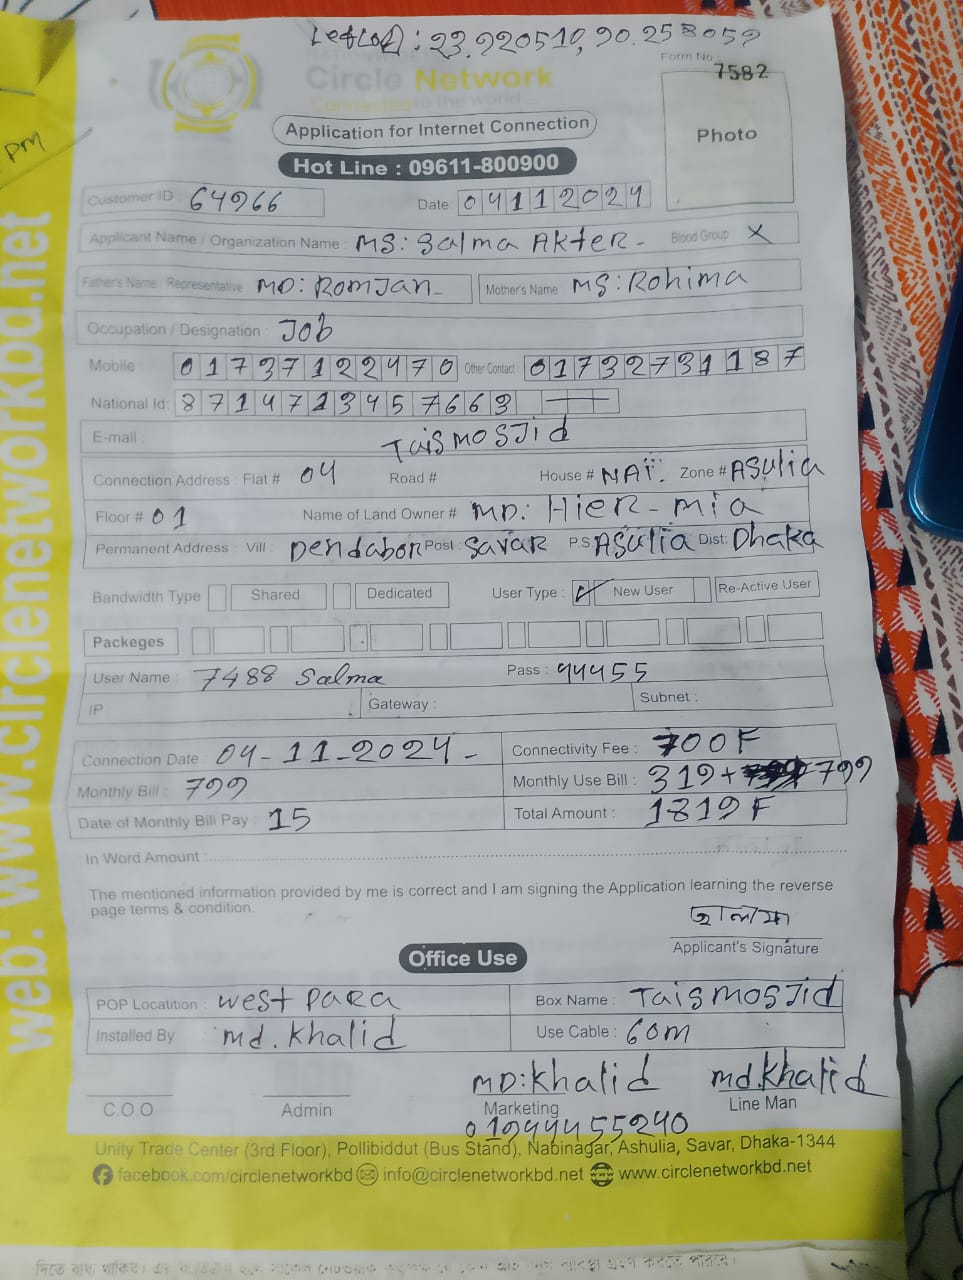 23.920519, 90.258059
Form No
7582
Circle Network
Connected to the world...
Photo
Application for Internet Connection
Hot Line : 09611-800900
Customer ID : 64966
Date : 04112024
Applicant Name / Organization Name : MS: Salma Akter - Blood Group : X
Father's Name / Representative MD: Romjan - Mother's Name : MS: Rohima
Occupation / Designation : Job
Mobile : 01737122470 Other Contact : 01732731187
National Id: 8714713457663
E-mail :
Taismosjid
Connection Address : Flat # 04 Road # House # NAI. Zone # Asulia
Floor # 01 Name of Land Owner # MD: Hier - mia
Permanent Address : Vill : Dendabor Post : Savar P.S Asulia Dist: Dhaka
Bandwidth Type Shared Dedicated User Type : New User Re-Active User
Packeges
User Name : 7488 Salma Pass : 44455
IP : Gateway : Subnet :
Connection Date : 04-11-2024 - Connectivity Fee : 700F
Monthly Bill : 799 Monthly Use Bill : 319+ 799
Date of Monthly Bill Pay : 15 Total Amount : 1819F
In Word Amount :
The mentioned information provided by me is correct and I am signing the Application learning the reverse
page terms & condition.
Applicant's Signature
Office Use
POP Locatition : West Para Box Name : Taismosjid
Installed By : md. Khalid Use Cable : 60m
MD: Khalid md. Khalid
C.O.O Admin Marketing Line Man
01944455240
Unity Trade Center (3rd Floor), Pollibiddut (Bus Stand), Nabinagar, Ashulia, Savar, Dhaka-1344
facebook.com/circlenetworkbd info@circlenetworkbd.net www.circlenetworkbd.net
web: www.circlenetworkbd.net
PM